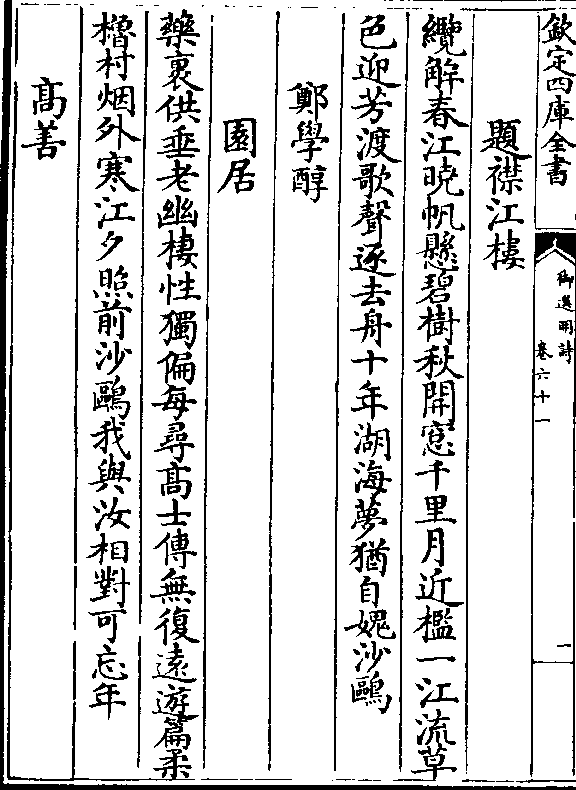 欽定四庫全書
御選明詩
卷六十一
一
題襟江樓
纜解春江曉帆懸碧樹秋開窓千里月近檻一江流草
色迎芳渡歌聲逐去舟十年湖海夢猶自媿沙鷗
鄭學醇
園居
藥裹供垂老幽棲性獨偏每尋髙士傳無復逺遊篇柔
櫓村烟外寒江夕照前沙鷗我與汝相對可忘年
髙善